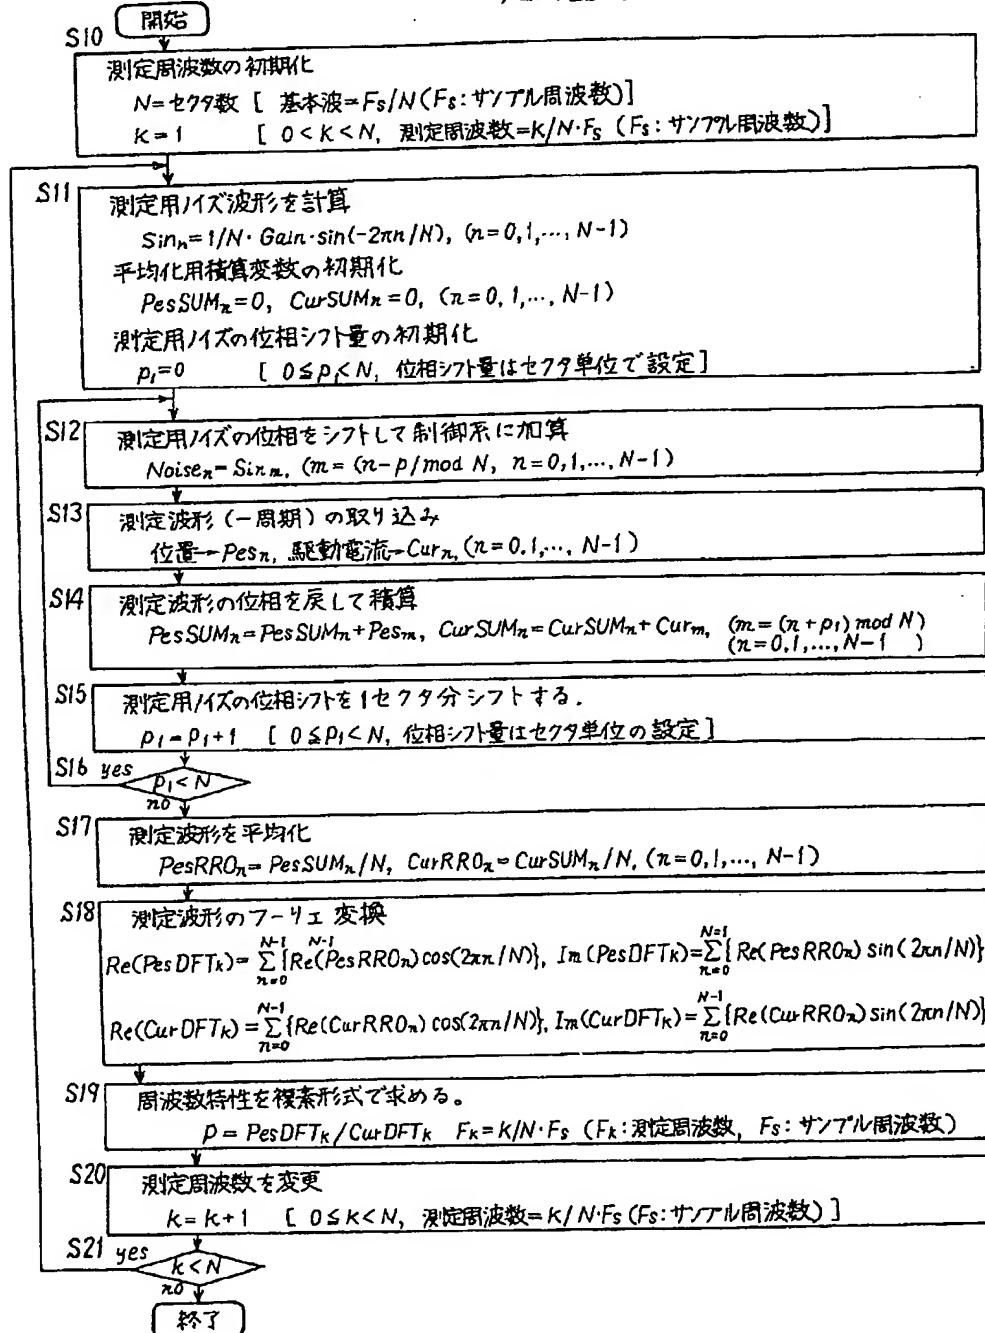 開始
S10
測定周波数の初期化
N=セクタ数 [ 基本波=Fs/N(Fs:サンプル周波数)]
K=1 [ 0<K<N, 測定周波数=K/N·Fs (Fs:サンプル周波数)]
S11
測定用ノイズ波形を計算
Sinn=1/N·Gain·sin(-2πn/N), (n=0,1,…,N-1)
平均化用積算変数の初期化
PesSUMn=0, CurSUMn=0, (n=0,1,…,N-1)
測定用ノイズの位相シフト量の初期化
p1=0 [ 0≦p1<N, 位相シフト量はセクタ単位で設定]
S12
測定用ノイズの位相をシフトして制御系に加算
Noisen=Sinm, (m=(n-p/mod N, n=0,1,…,N-1)
S13
測定波形(一周期)の取り込み
位置→Pesn, 駆動電流→Curn, (n=0.1,…,N-1)
S14
測定波形の位相を戻して積算
PesSUMn=PesSUMn+Pesm, CurSUMn=CurSUMn+Curm, (m=(n+p1)mod N)
(n=0,1,…,N-1 )
S15
測定用ノイズの位相シフトを1セクタ分シフトする.
p1=p1+1 [ 0≦p1<N, 位相シフト量はセクタ単位の設定]
S16 yes
p1<N
no
S17
測定波形を平均化
PesRROn=PesSUMn/N, CurRROn=CurSUMn/N, (n=0,1,…,N-1)
S18
測定波形のフーリェ変換
N-1 N-1 N-1 N=1
Re(PesDFTK)=Σ{Re(PesRROn)cos(2πn/N)}, Im(PesDFTK)=Σ{Re(PesRROn)sin(2πn/N)}
n=0 n=0
N-1 N-1
Re(CurDFTK)=Σ{Re(CurRROn)cos(2πn/N)}, Im(CurDFTK)=Σ{Re(CurRROn)sin(2πn/N)}
n=0 n=0
S19
周波数特性を複素形式で求める。
P=PesDFTK/CurDFTK FK=K/N·Fs (FK:測定周波数, Fs:サンプル周波数)
S20
測定周波数を変更
K=K+1 [ 0≦K<N, 測定周波数=K/N·Fs(Fs:サンプル周波数)]
S21 yes
K<N
no
終了